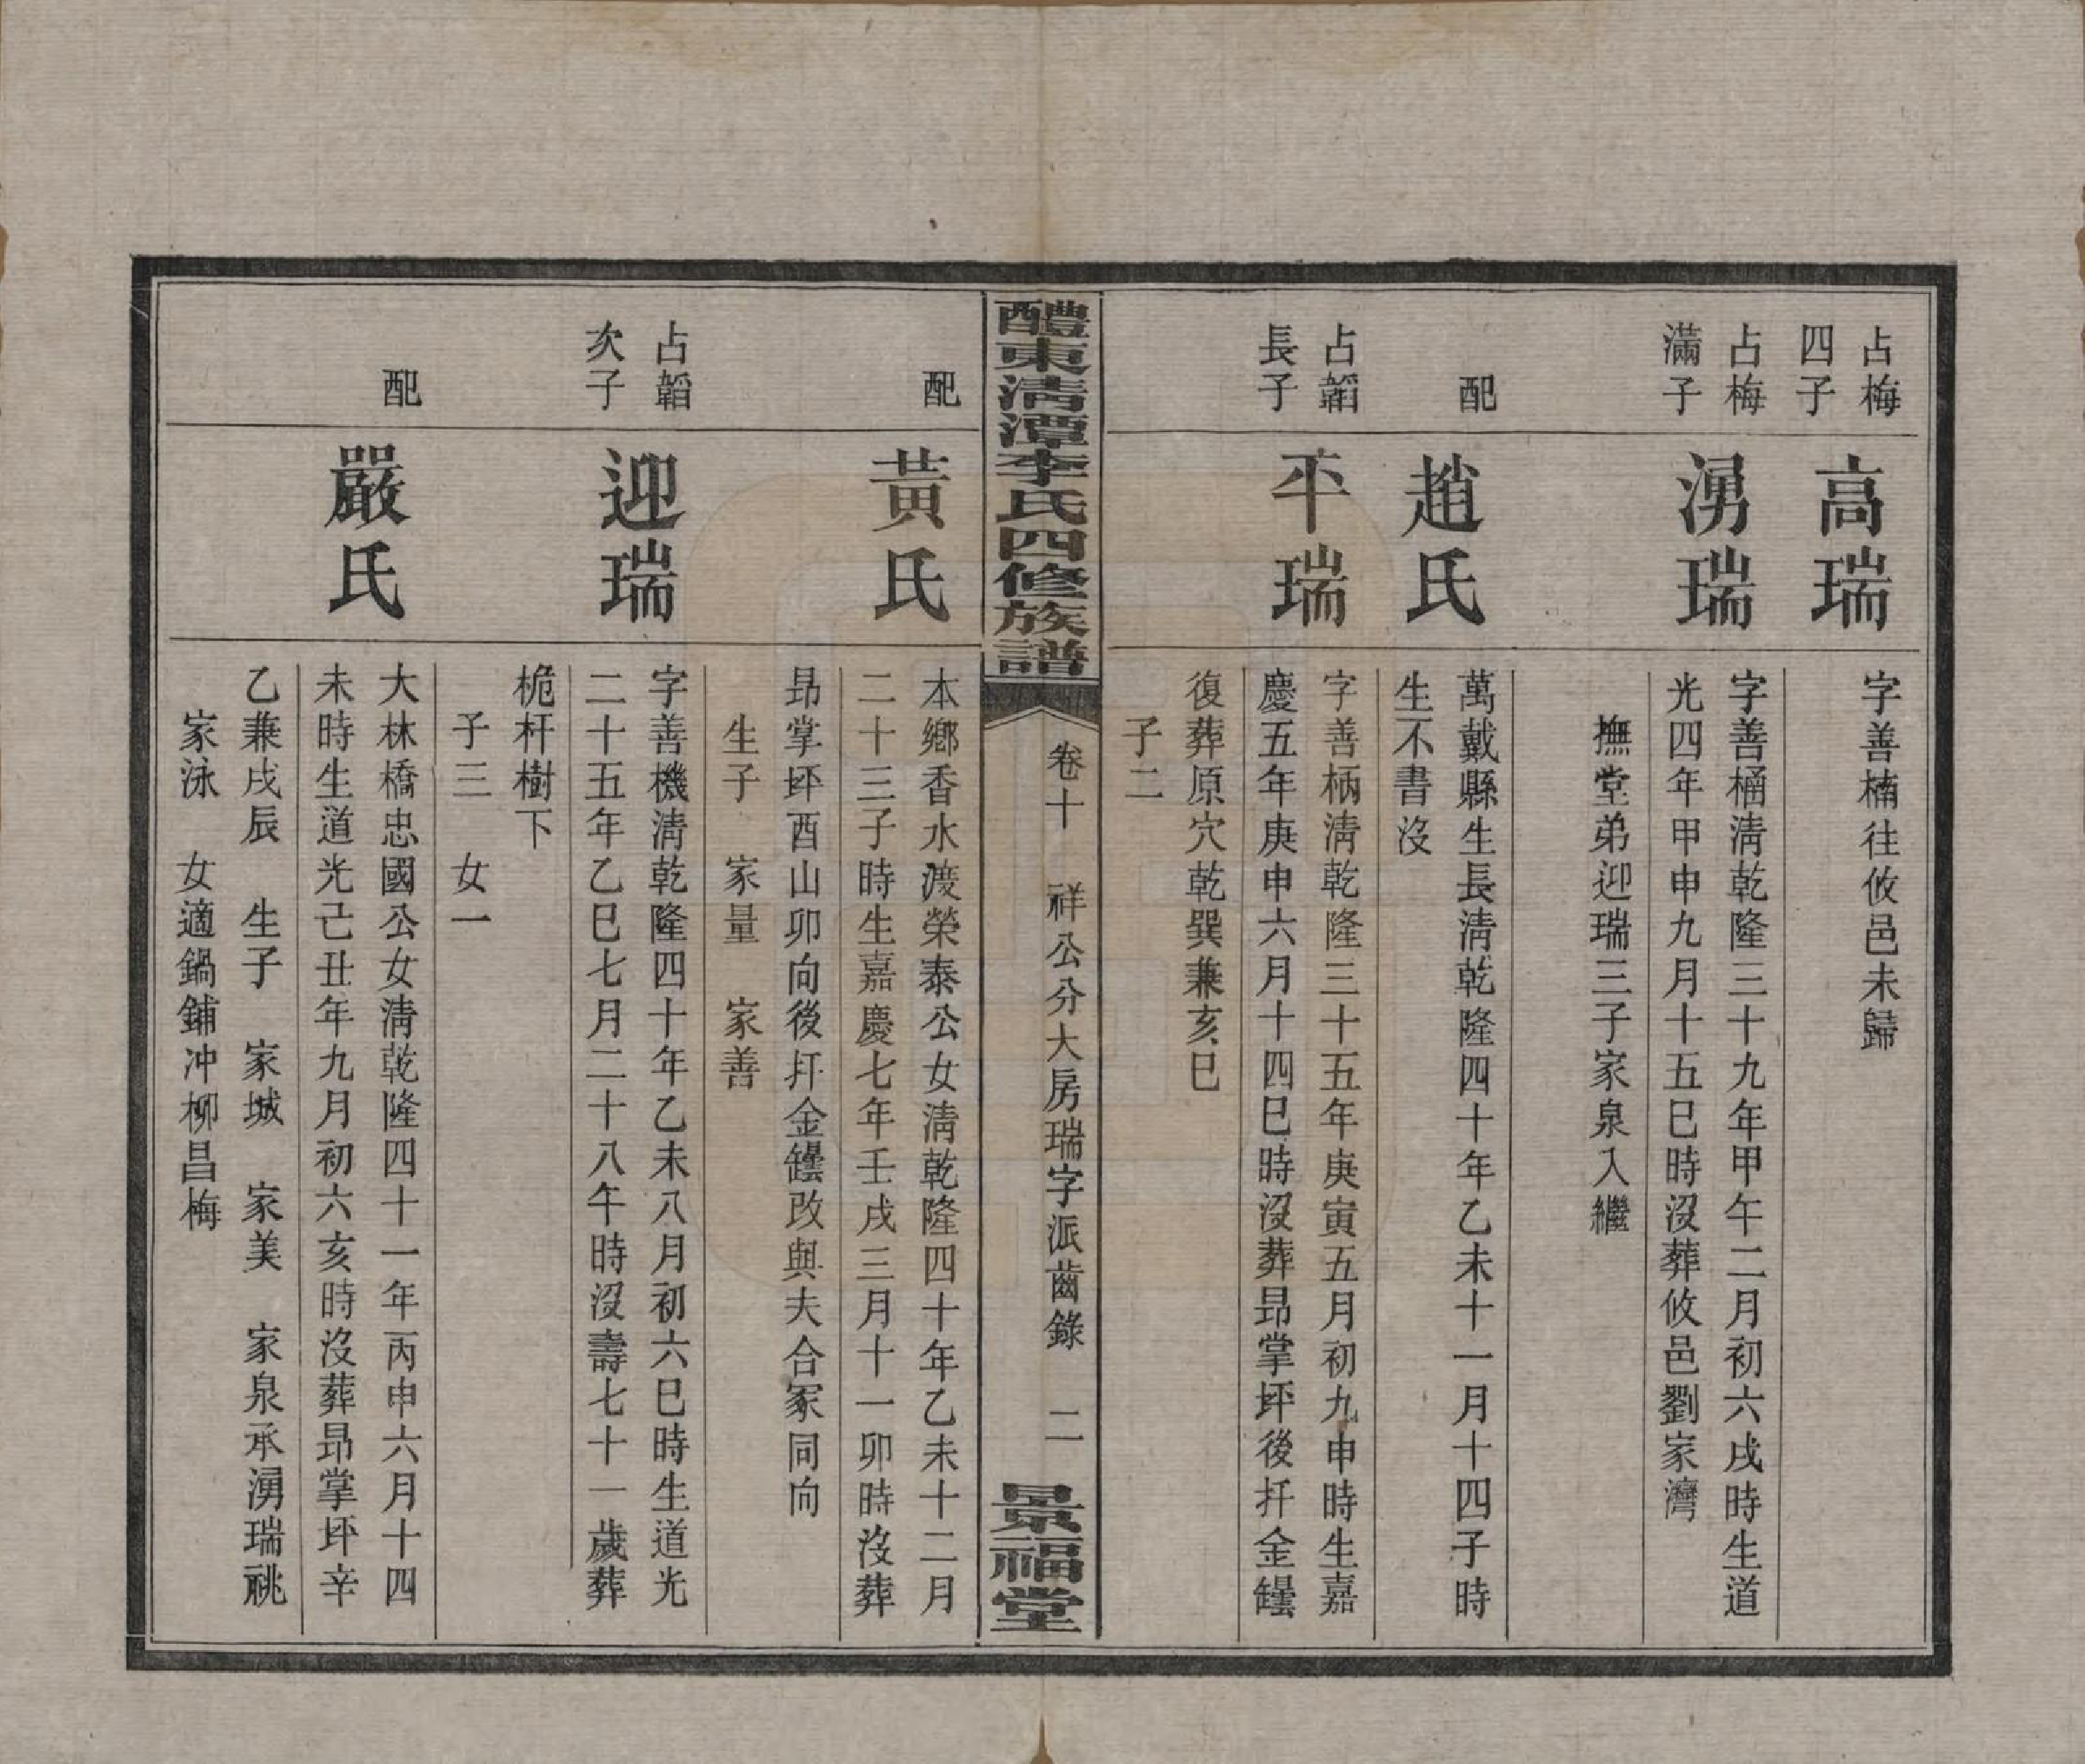 占梅
四子
高瑞
字善楠往攸邑未歸
占梅
滿子
湧瑞
字善桶淸乾隆三十九年甲午二月初六戌時生道
光四年甲申九月十五巳時沒葬攸邑劉家灣
撫堂弟迎瑞三子家泉入繼
配
趙氏
萬戴縣生長淸乾隆四十年乙未十一月十四子時
生不書沒
占韜
長子
平瑞
字善柄淸乾隆三十五年庚寅五月初九申時生嘉
慶五年庚申六月十四巳時沒葬昻掌坪後扦金罎
復葬原穴乾巽兼亥巳
子二
醴東淸潭李氏四修族譜
卷十 祥公分大房瑞字派齒錄 二
景福堂
配
黃氏
本鄕香水渡榮泰公女淸乾隆四十年乙未十二月
二十三子時生嘉慶七年壬戌三月十一卯時沒葬
昻掌坪酉山卯向後扦金罎改與夫合冢同向
生子 家量 家善
占韜
次子
迎瑞
字善機淸乾隆四十年乙未八月初六巳時生道光
二十五年乙巳七月二十八午時沒壽七十一歲葬
桅杆樹下
子三 女一
配
嚴氏
大林橋忠國公女淸乾隆四十一年丙申六月十四
未時生道光己丑年九月初六亥時沒葬昻掌坪辛
乙兼戌辰 生子 家城 家美 家泉承湧瑞祧
家泳 女適鍋鋪冲柳昌梅